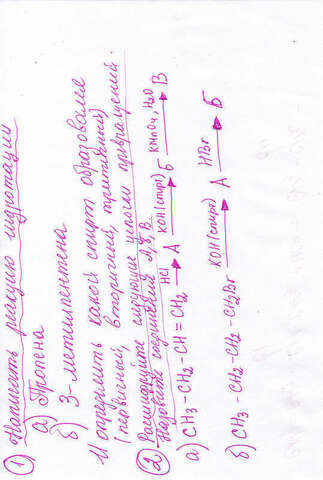 ① Написать реакцию гидротации
а) Пропена
б) 3-метилпентена
И определить какой спирт образовался
(первичный, вторичный, третичный)
② Расшифруйте следующие цепочки превращений.
Назовите соединения А, Б, В.
а) CH3 - CH2 - CH = CH2 HCl → А KOH (спирт) → Б KMnO4, H2O → В
б) CH3 - CH2 - CH2 - CH2Br KOH (спирт) → А HBr → Б